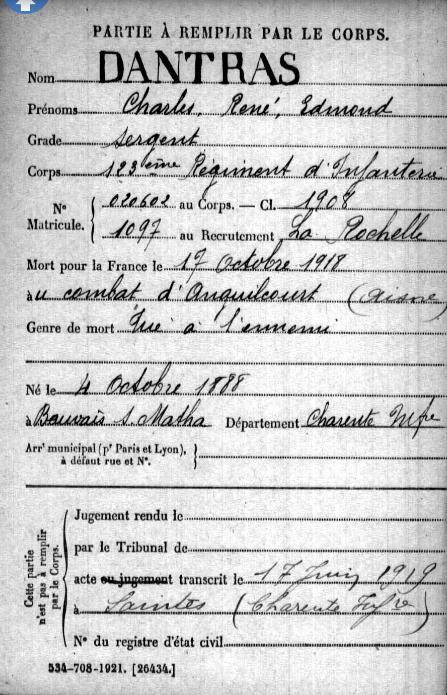 PARTIE À REMPLIR PAR LE CORPS.
Nom DANTRAS
Prénoms Charles, René, Edmond
Grade Sergent
Corps 123ème Régiment d'Infanterie
N° Matricule. 020602 au Corps. — Cl. 1908
1097 au Recrutement La Rochelle
Mort pour la France le 17 Octobre 1918
à u combat d' (Aisne)
Genre de mort Tué à l'ennemi
Né le 4 Octobre 1888
à Bauvais s Matha Département Charente Infre
Arrt municipal (pr Paris et Lyon),
à défaut rue et N°.
Cette partie n'est pas à remplir par le Corps.
Jugement rendu le
par le Tribunal de
acte ou jugement transcrit le 17 Juin 1919
à Saintes (Charente Infre)
N° du registre d'état civil
534-708-1921. [26434.]